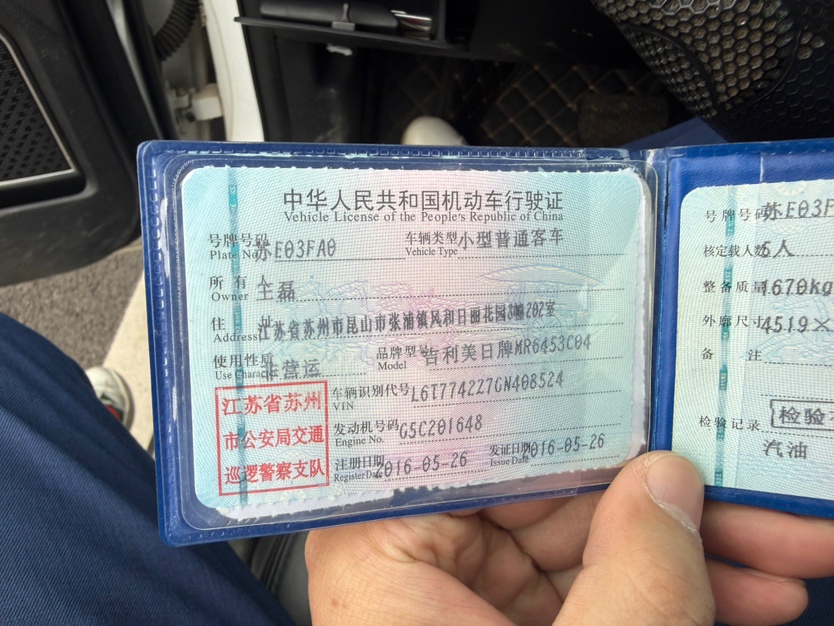 中华人民共和国机动车行驶证
Vehicle License of the People's Republic of China
号牌号码 苏E03FA0 车辆类型 小型普通客车
Plate No. Vehicle Type
所有人 王磊
Owner
住址 江苏省苏州市昆山市张浦镇风和日丽花园8幢202室
Address
使用性质 非营运 品牌型号 吉利美日牌MR6453C04
Use Character Model
江苏省苏州
市公安局交通
巡逻警察支队
车辆识别代号 L6T7742Z7GN408524
VIN
发动机号码 G5C201648
Engine No.
注册日期 2016-05-26 发证日期 2016-05-26
Register Date Issue Date
号牌号码 苏E03F
核定载人数 5人
整备质量 1670kg
外廓尺寸 4519×
备注
检验记录 检验
汽油